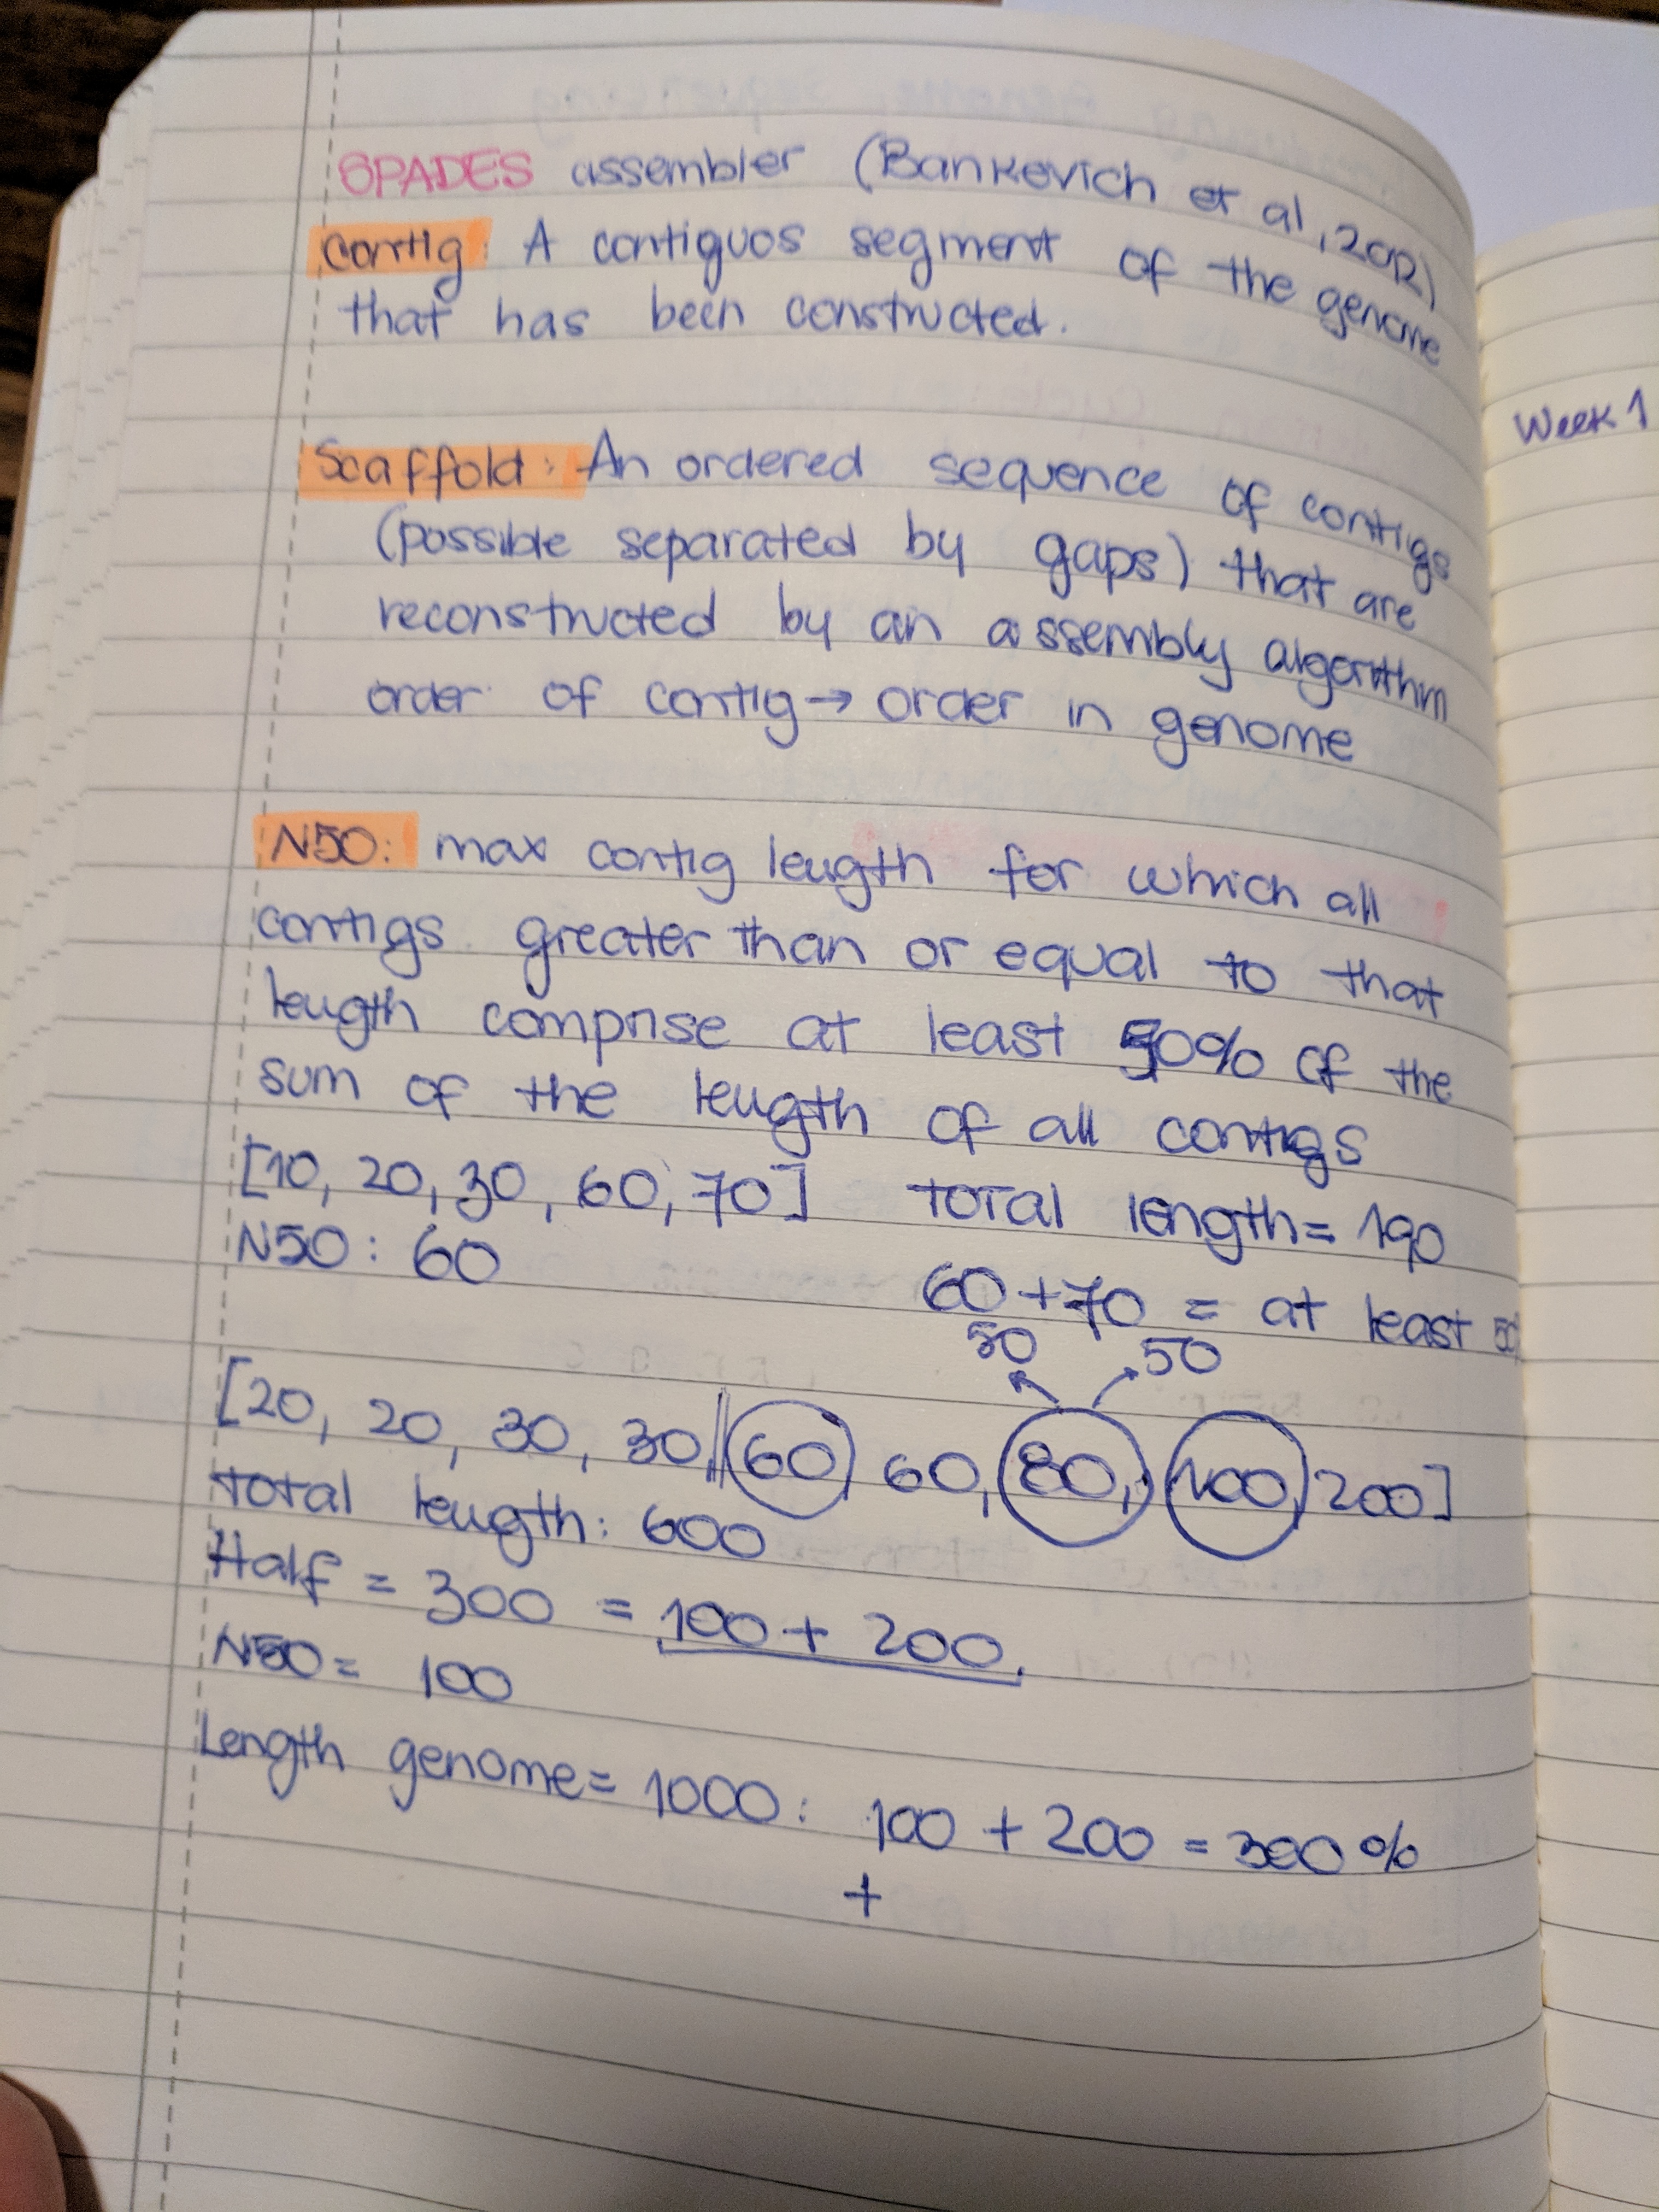 SPADES assembler (Bankevich et al, 2012)
contig: A contiguos segment of the genome
that has been constructed.
Week 1
Scaffold: An ordered sequence of contigs
(possible separated by gaps) that are
reconstructed by an assembly algorithm
order of contig → order in genome
N50: max contig length for which all
contigs greater than or equal to that
length comprise at least 50% of the
sum of the length of all contigs
[10, 20, 30, 60, 70] Total length = 190
N50: 60
60+70 = at least
50 50
[20, 20, 30, 30, 60 60, 80, 100, 200]
Total length: 600
Half = 300 = 100 + 200.
N50 = 100
Length genome = 1000: 100 + 200 = 300 %
+